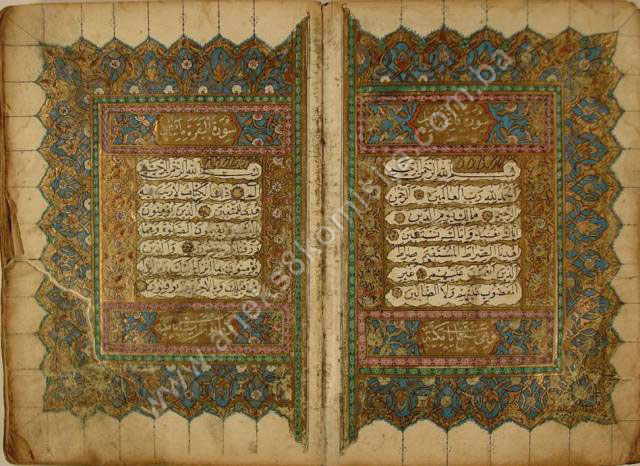 سورة
بسم الله الرحمن الرحيم
الحمد لله رب العالمين الرحمن
الرحيم مالك يوم الدين
اياك نعبد واياك نستعين
اهدنا الصراط المستقيم صراط
الذين انعمت عليهم غير
المغضوب عليهم ولا الضالين
وهي سبع ايات مكية
سورة البقرة مائتان
بسم الله الرحمن الرحيم
الم ذلك الكتاب لا ريب فيه
هدى للمتقين الذين يؤمنون
بالغيب ويقيمون الصلوة ومما
رزقناهم ينفقون والذين
يؤمنون بما انزل اليك وما انزل
من قبلك وبالاخرة هم يوقنون
www.aneks8komisija.com.ba